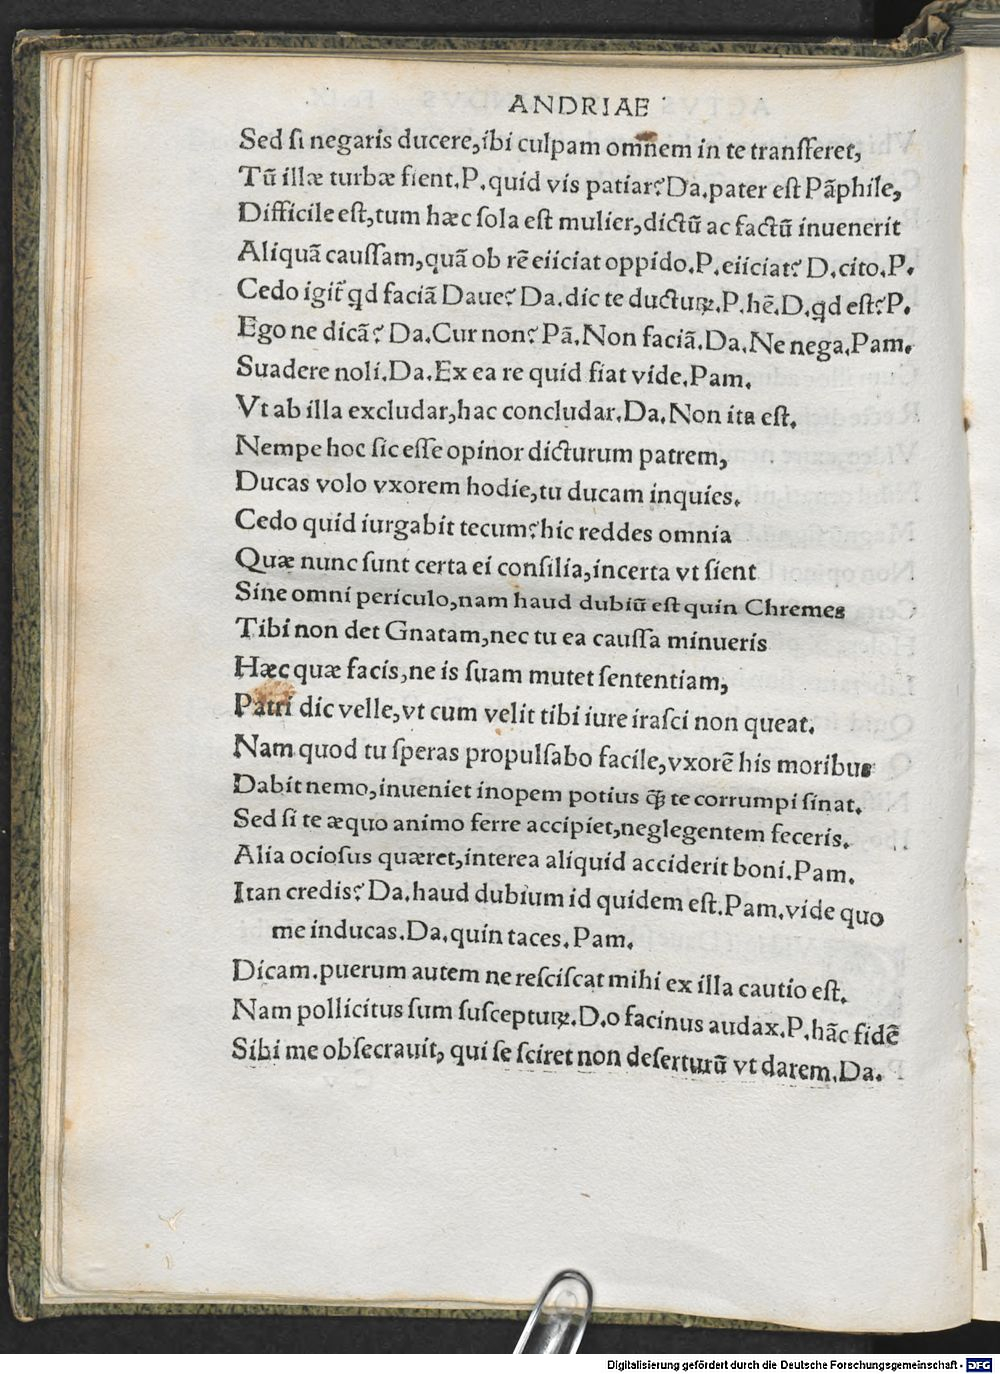 ANDRIAE
Sed ſi negaris ducere,ibi culpam omnem in te tranſferet,
Tū illæ turbæ fient.P.quid vis patiar? Da.pater eſt Pāphile,
Difficile eſt,tum hæc ſola eſt mulier,dictū ac factū inuenerit
Aliquā cauſſam,quā ob rē eiiciat oppido.P.eiiciat? D.cito.P.
Cedo igit̄ qd faciā Daue? Da.dic te ducturꝝ.P.hē.D.qd eſt? P.
Ego ne dicā? Da.Cur non? Pā.Non faciā.Da.Ne nega.Pam.
Suadere noli.Da.Ex ea re quid fiat vide.Pam.
Vt ab illa excludar,hac concludar.Da.Non ita eſt.
Nempe hoc ſic eſſe opinor dicturum patrem,
Ducas volo vxorem hodie,tu ducam inquies.
Cedo quid iurgabit tecum? hic reddes omnia
Quæ nunc ſunt certa ei conſilia,incerta vt ſient
Sine omni periculo,nam haud dubiū eſt quin Chremes
Tibi non det Gnatam,nec tu ea cauſſa minueris
Hæc quæ facis,ne is ſuam mutet ſententiam,
Patri dic velle,vt cum velit tibi iure iraſci non queat.
Nam quod tu ſperas propulſabo facile,vxorē his moribus
Dabit nemo,inueniet inopem potius q̄ƺ te corrumpi ſinat.
Sed ſi te æquo animo ferre accipiet,neglegentem feceris.
Alia ocioſus quæret,interea aliquid acciderit boni.Pam.
Itan credis? Da.haud dubium id quidem eſt.Pam.vide quo
me inducas.Da.quin taces.Pam.
Dicam.puerum autem ne reſciſcat mihi ex illa cautio eſt.
Nam pollicitus ſum ſuſcepturꝝ.D.o facinus audax.P.hāc fidē
Sibi me obſecrauit, qui ſe ſciret non deſerturū vt darem.Da.
Digitalisierung gefördert durch die Deutsche Forschungsgemeinschaft - DFG